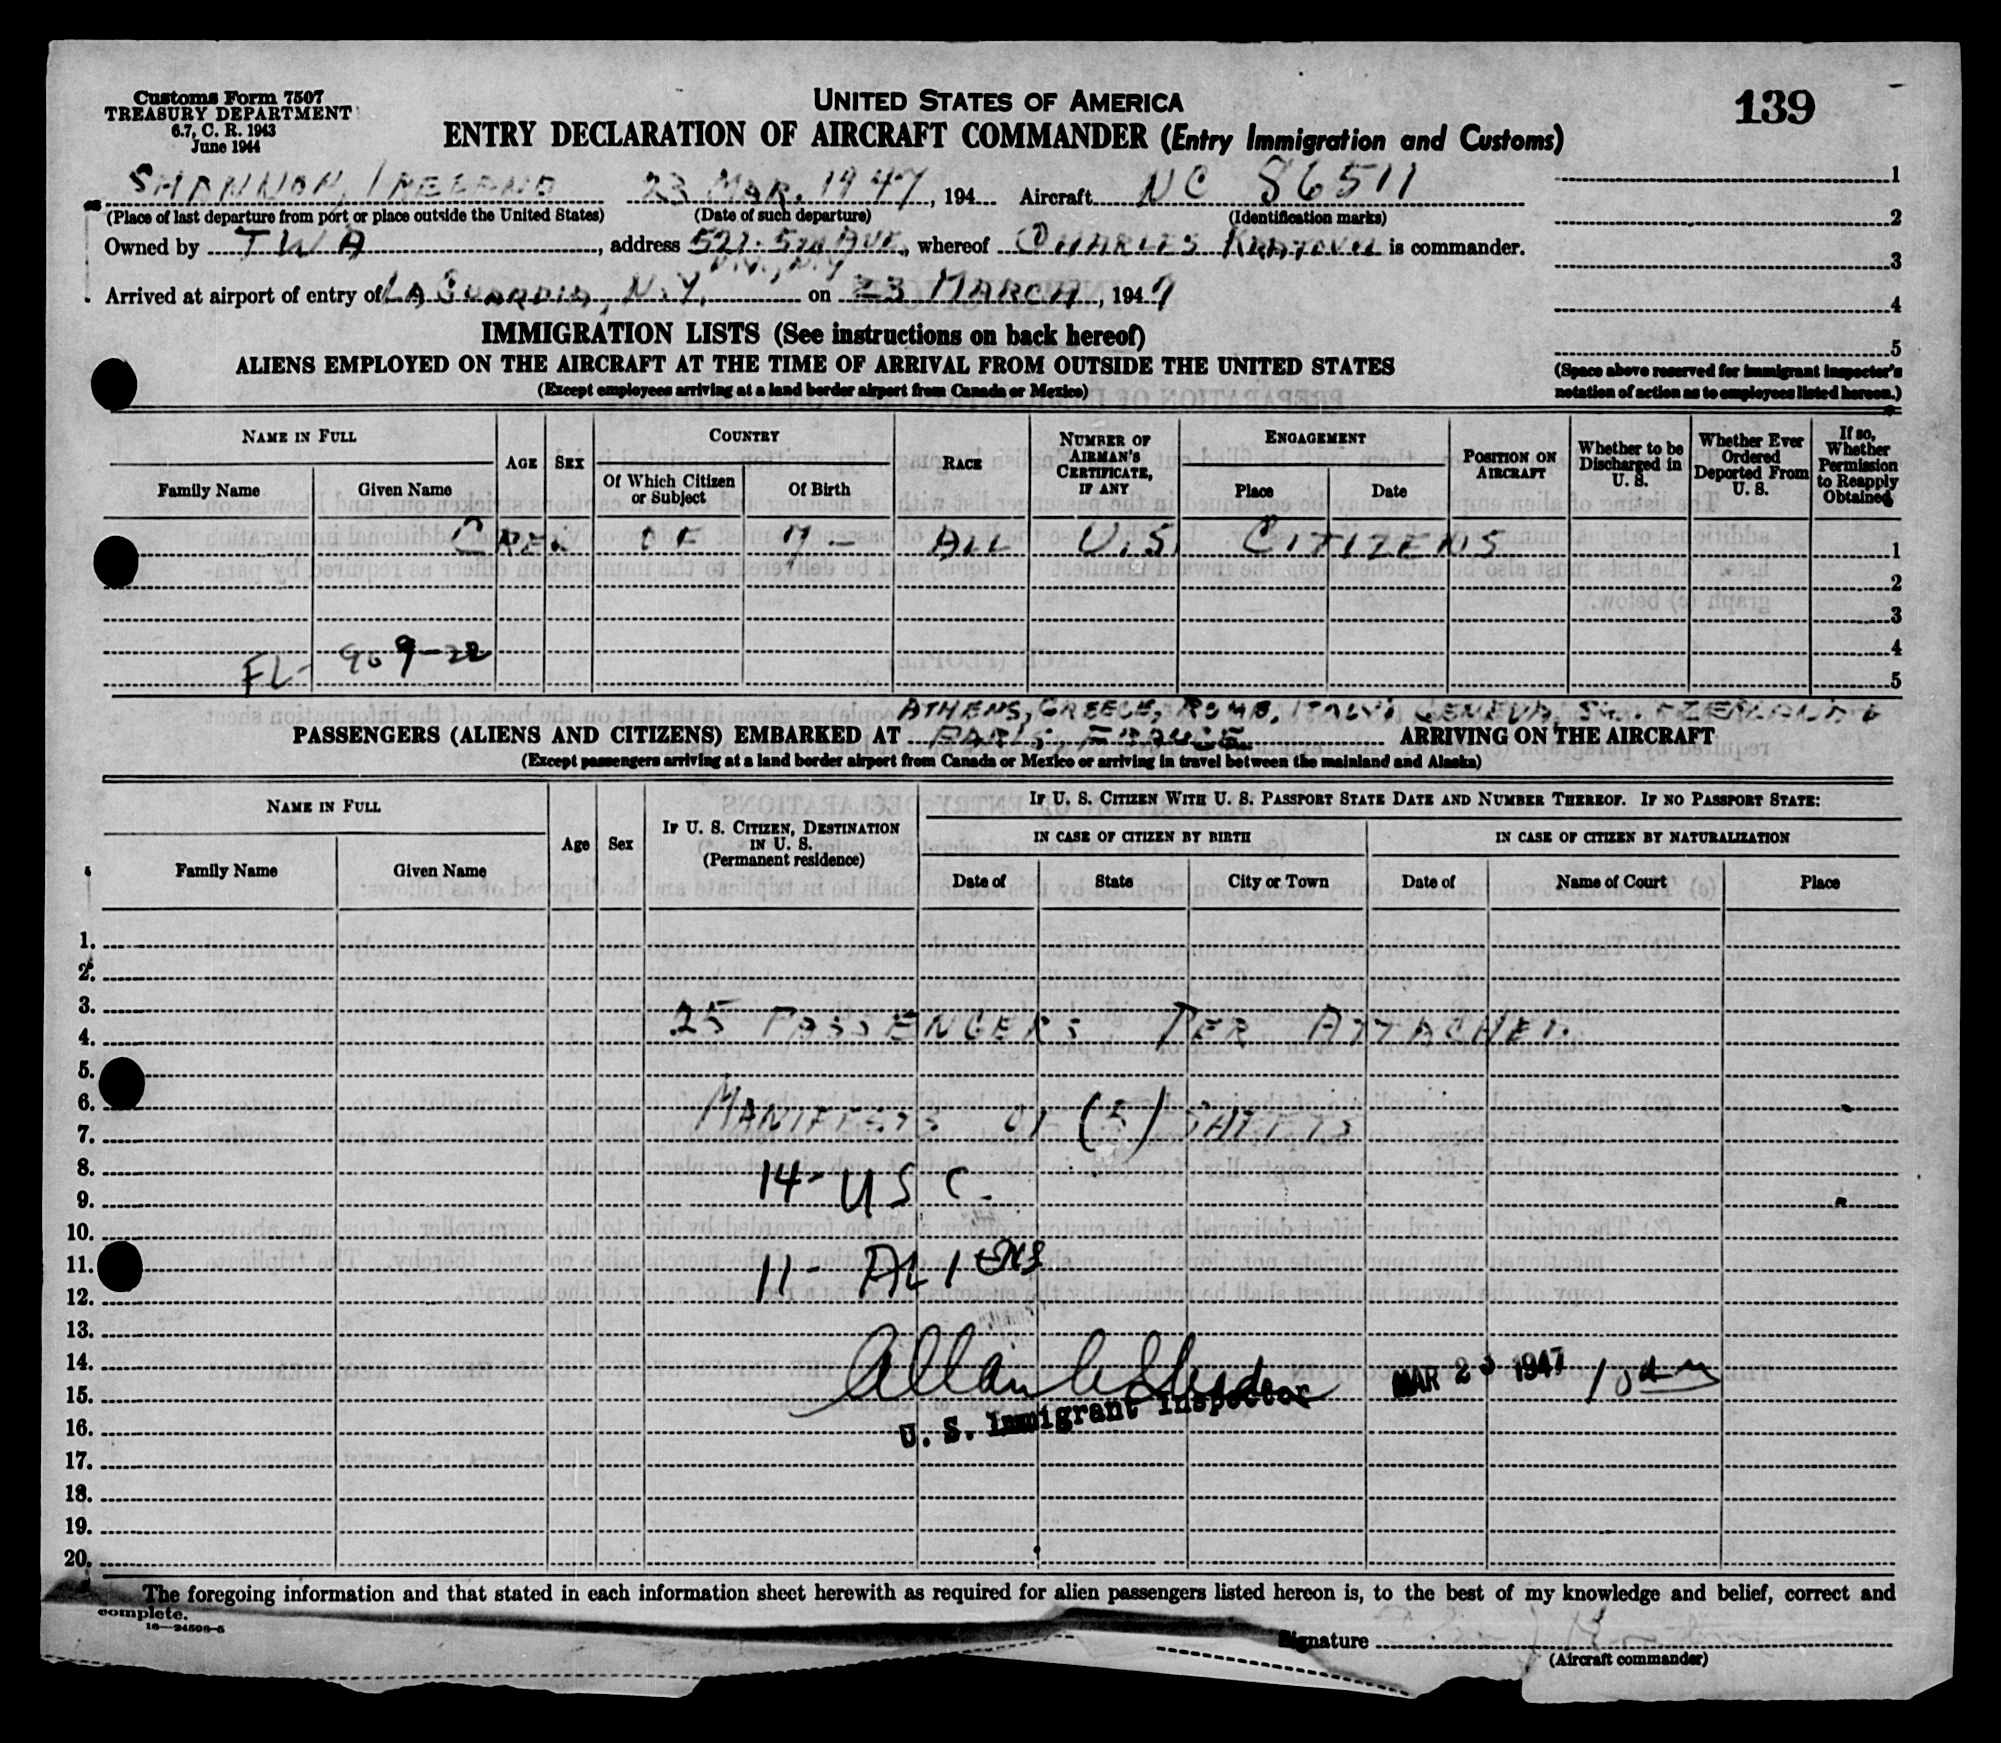 Customs Form 7507
TREASURY DEPARTMENT
6.7, C. R. 1943
June 1944
UNITED STATES OF AMERICA
ENTRY DECLARATION OF AIRCRAFT COMMANDER (Entry Immigration and Customs)
139
SHANNON, IRELAND 23 MAR. 1947, 194 Aircraft NC 86511
(Place of last departure from port or place outside the United States) (Date of such departure) (Identification marks)
Owned by TWA, address 521-5TH AVE, whereof CHARLES is commander.
N.Y., N.Y
Arrived at airport of entry of LA GUARDIA, N.Y. on 23 MARCH, 1947
1
2
3
4
5
(Space above reserved for immigrant inspector's
notation of action as to employees listed hereon.)
IMMIGRATION LISTS (See instructions on back hereof)
ALIENS EMPLOYED ON THE AIRCRAFT AT THE TIME OF ARRIVAL FROM OUTSIDE THE UNITED STATES
(Except employees arriving at a land border airport from Canada or Mexico)
NAME IN FULL
Family Name
Given Name
AGE
SEX
COUNTRY
Of Which Citizen
or Subject
Of Birth
RACE
NUMBER OF
AIRMAN'S
CERTIFICATE,
IF ANY
ENGAGEMENT
Place
Date
POSITION ON
AIRCRAFT
Whether to be
Discharged in
U. S.
Whether Ever
Ordered
Deported From
U. S.
If so,
Whether
Permission
to Reapply
Obtained
CREW OF 7 - ALL U.S. CITIZENS 1
2
3
4
FL- 909-22
5
ATHENS, GREECE, ROME, ITALY, GENEVA, SWITZERLAND &
PASSENGERS (ALIENS AND CITIZENS) EMBARKED AT PARIS, FRANCE ARRIVING ON THE AIRCRAFT
(Except passengers arriving at a land border airport from Canada or Mexico or arriving in travel between the mainland and Alaska)
NAME IN FULL
Family Name
Given Name
Age
Sex
IF U. S. CITIZEN, DESTINATION
IN U. S.
(Permanent residence)
IF U. S. CITIZEN WITH U. S. PASSPORT STATE DATE AND NUMBER THEREOF. IF NO PASSPORT STATE:
IN CASE OF CITIZEN BY BIRTH
IN CASE OF CITIZEN BY NATURALIZATION
Date of
State
City or Town
Date of
Name of Court
Place
1.
2.
3.
25 PASSENGERS PER ATTACHED
4.
5.
6.
MANIFESTS OF (5) SHEETS
7.
8.
14- USC.
9.
10.
11.
11- ALIENS
12.
13.
14.
MAR 23 1947
15.
U. S. Immigrant Inspector
16.
17.
18.
19.
20.
The foregoing information and that stated in each information sheet herewith as required for alien passengers listed hereon is, to the best of my knowledge and belief, correct and
complete.
16—24506-5
Signature
(Aircraft commander)